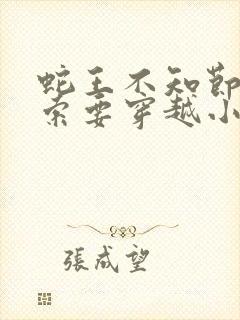 蛇王不知節
索要穿越小
張成望